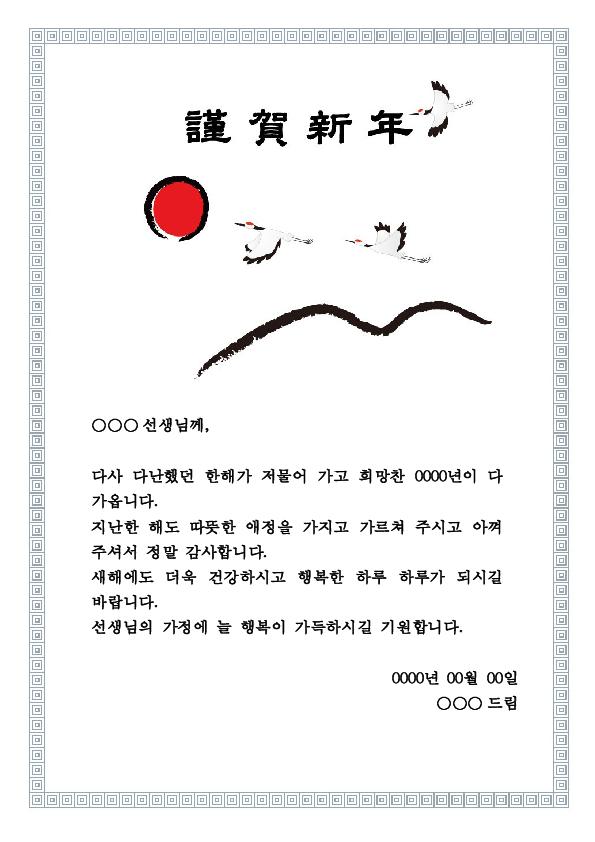 謹賀新年
○○○ 선생님께,
다사 다난했던 한해가 저물어 가고 희망찬 0000년이 다
가옵니다.
지난한 해도 따뜻한 애정을 가지고 가르쳐 주시고 아껴
주셔서 정말 감사합니다.
새해에도 더욱 건강하시고 행복한 하루 하루가 되시길
바랍니다.
선생님의 가정에 늘 행복이 가득하시길 기원합니다.
0000년 00월 00일
○○○ 드림